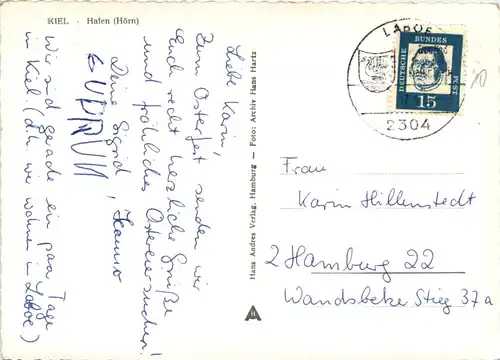 KIEL - Hafen (Hörn)
Liebe Karin,
zum Osterfest senden wir
Euch recht herzliche Grüße
und fröhliches Ostereiersuchen!
Deine Sigrid,
Wir sind gerade ein paar Tage
in Kiel. (d.h. wir wohnen in Laboe)
Hans Andres Verlag, Hamburg — Foto: Archiv Hans Hartz
A
LABOE
2304
DEUTSCHE BUNDESPOST
15
10
Frau
Karin Hillenstedt
2 Hamburg 22
Wandsbeker Stieg 37a